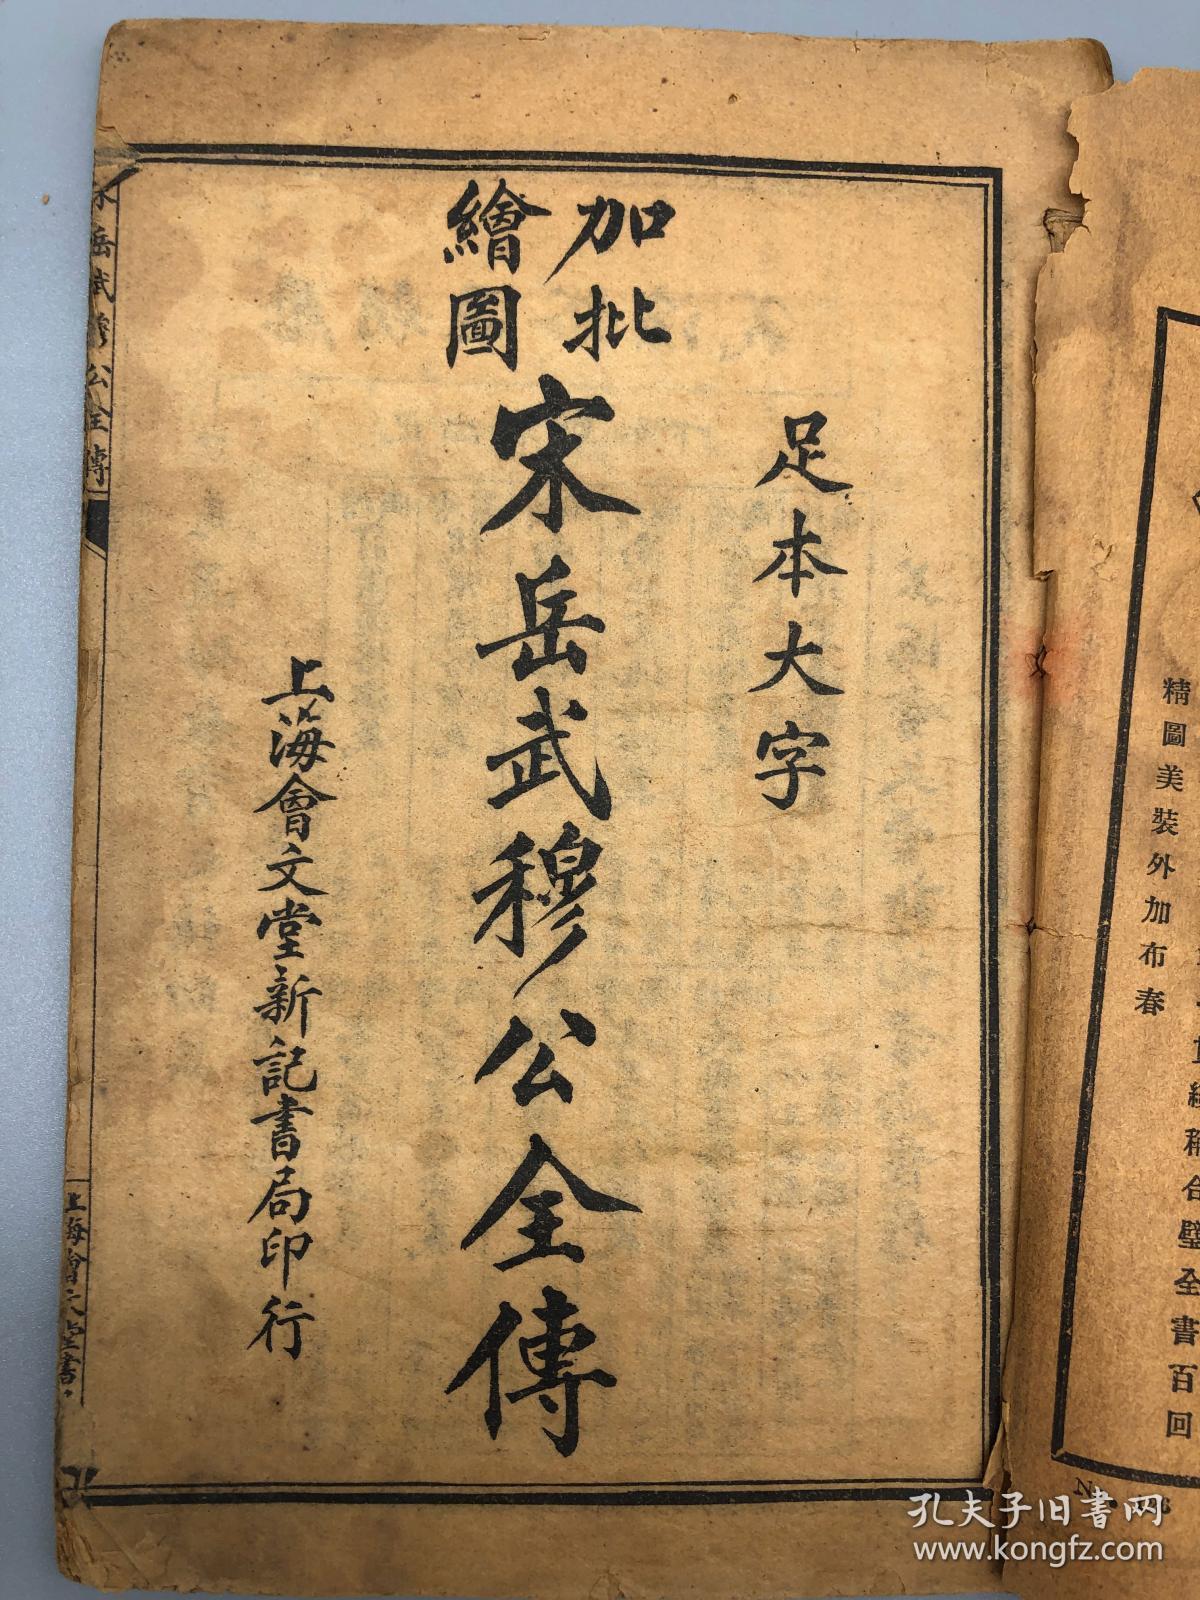 足本大字
加批
繪圖
宋岳武穆公全傳
上海會文堂新記書局印行
岳武穆公全傳
上海會文堂書
精圖美裝外加布春
合璧全書百回
孔夫子旧书网
www.kongfz.com